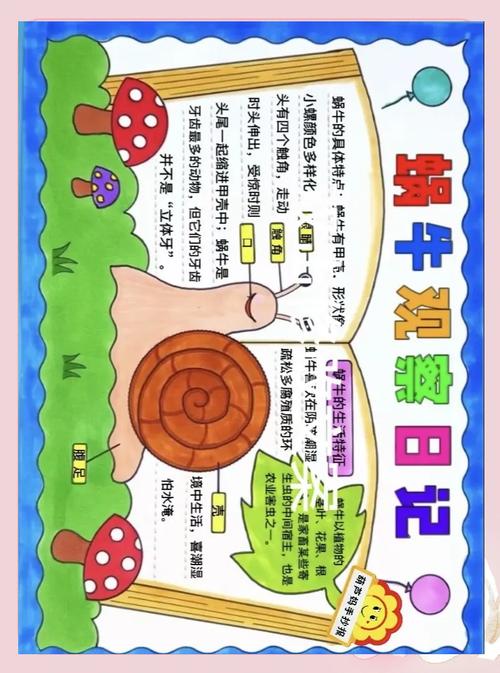 蜗牛观察日记
蜗牛的具体特点：蜗牛有甲壳，形状像
小螺颜色多样化
头有四个触角，走动
时头伸出，受惊时则
头尾一起缩进甲壳中；蜗牛是
牙齿最多的动物，但它们的牙齿
并不是“立体牙”。
睛
触角
口
蜗牛的生活特征
牛 在阴 潮湿
疏松多腐殖质的环
境中生活，喜潮湿
怕水淹。
蜗牛以植物的
叶、花果、根
是家畜某些寄
生虫的中间宿主，也是
农业害虫之一。
壳
腹足
葫芦妈手抄报